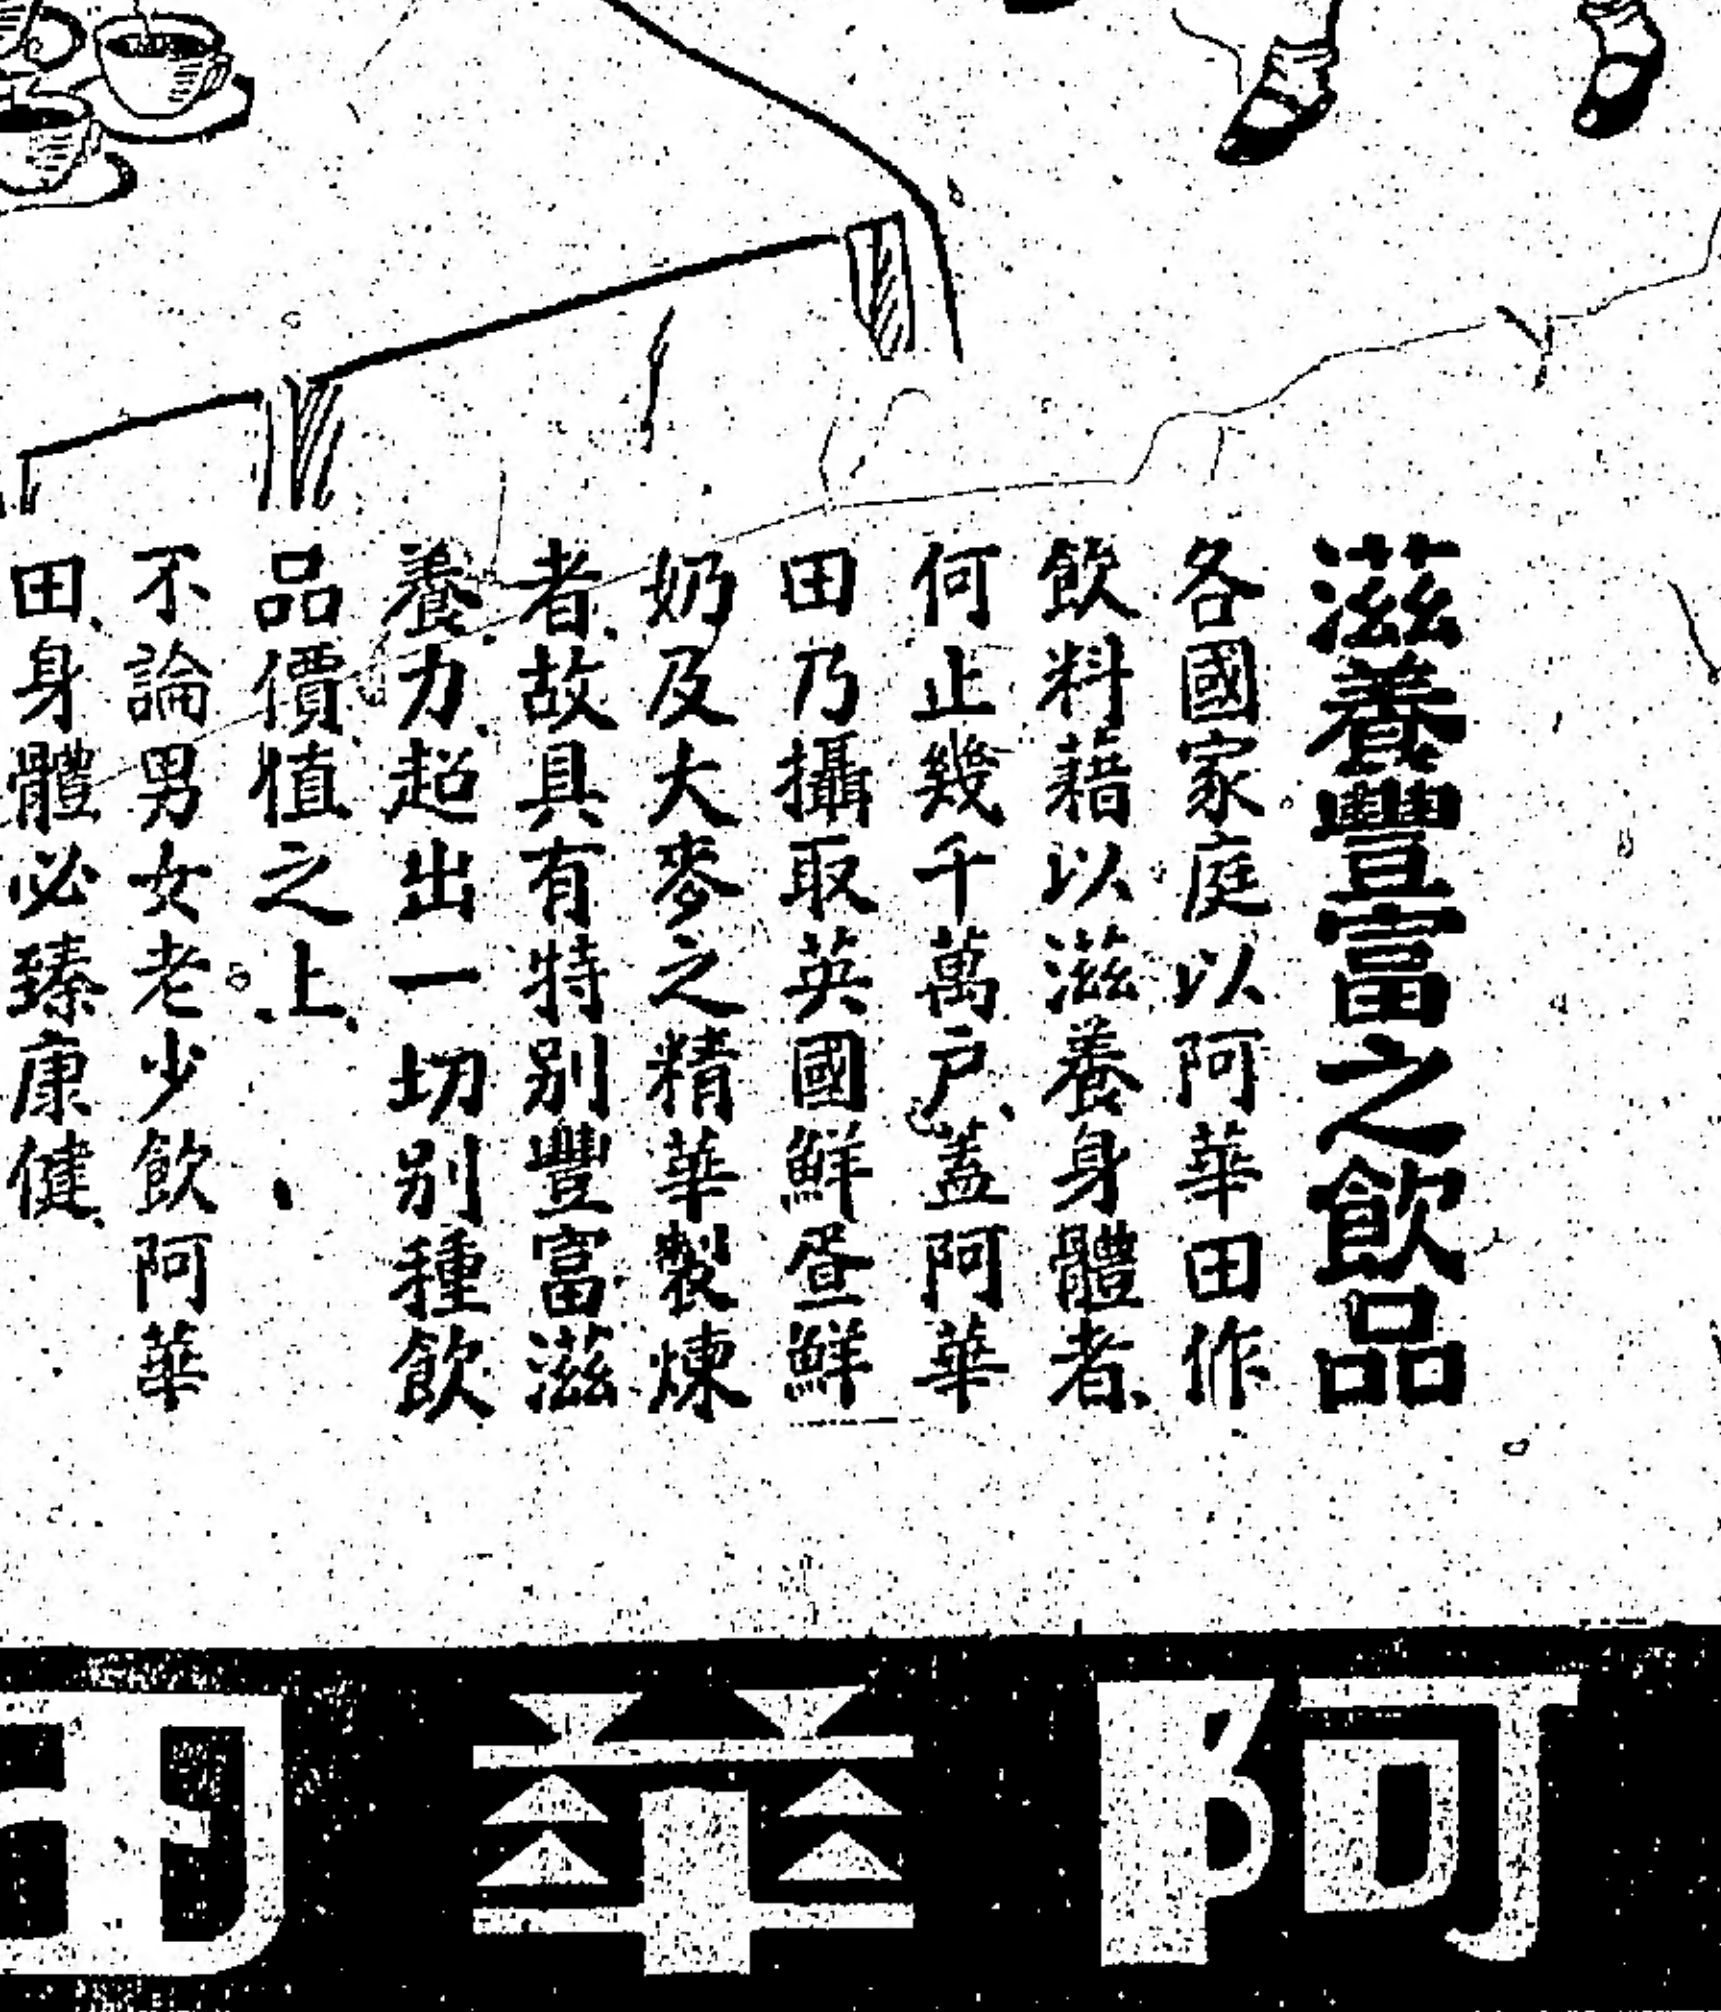 滋養豐富之飲品
各國家庭以阿華田作
飲料藉以滋養身體者、
何止幾千萬戶、蓋阿華
田乃攝取英國鮮蛋鮮
奶及大麥之精華製煉
者、故具有特別豐富滋
養力、超出一切別種飲
品價值之上、
不論男女老少飲阿華
田、身體必臻康健、
阿華田